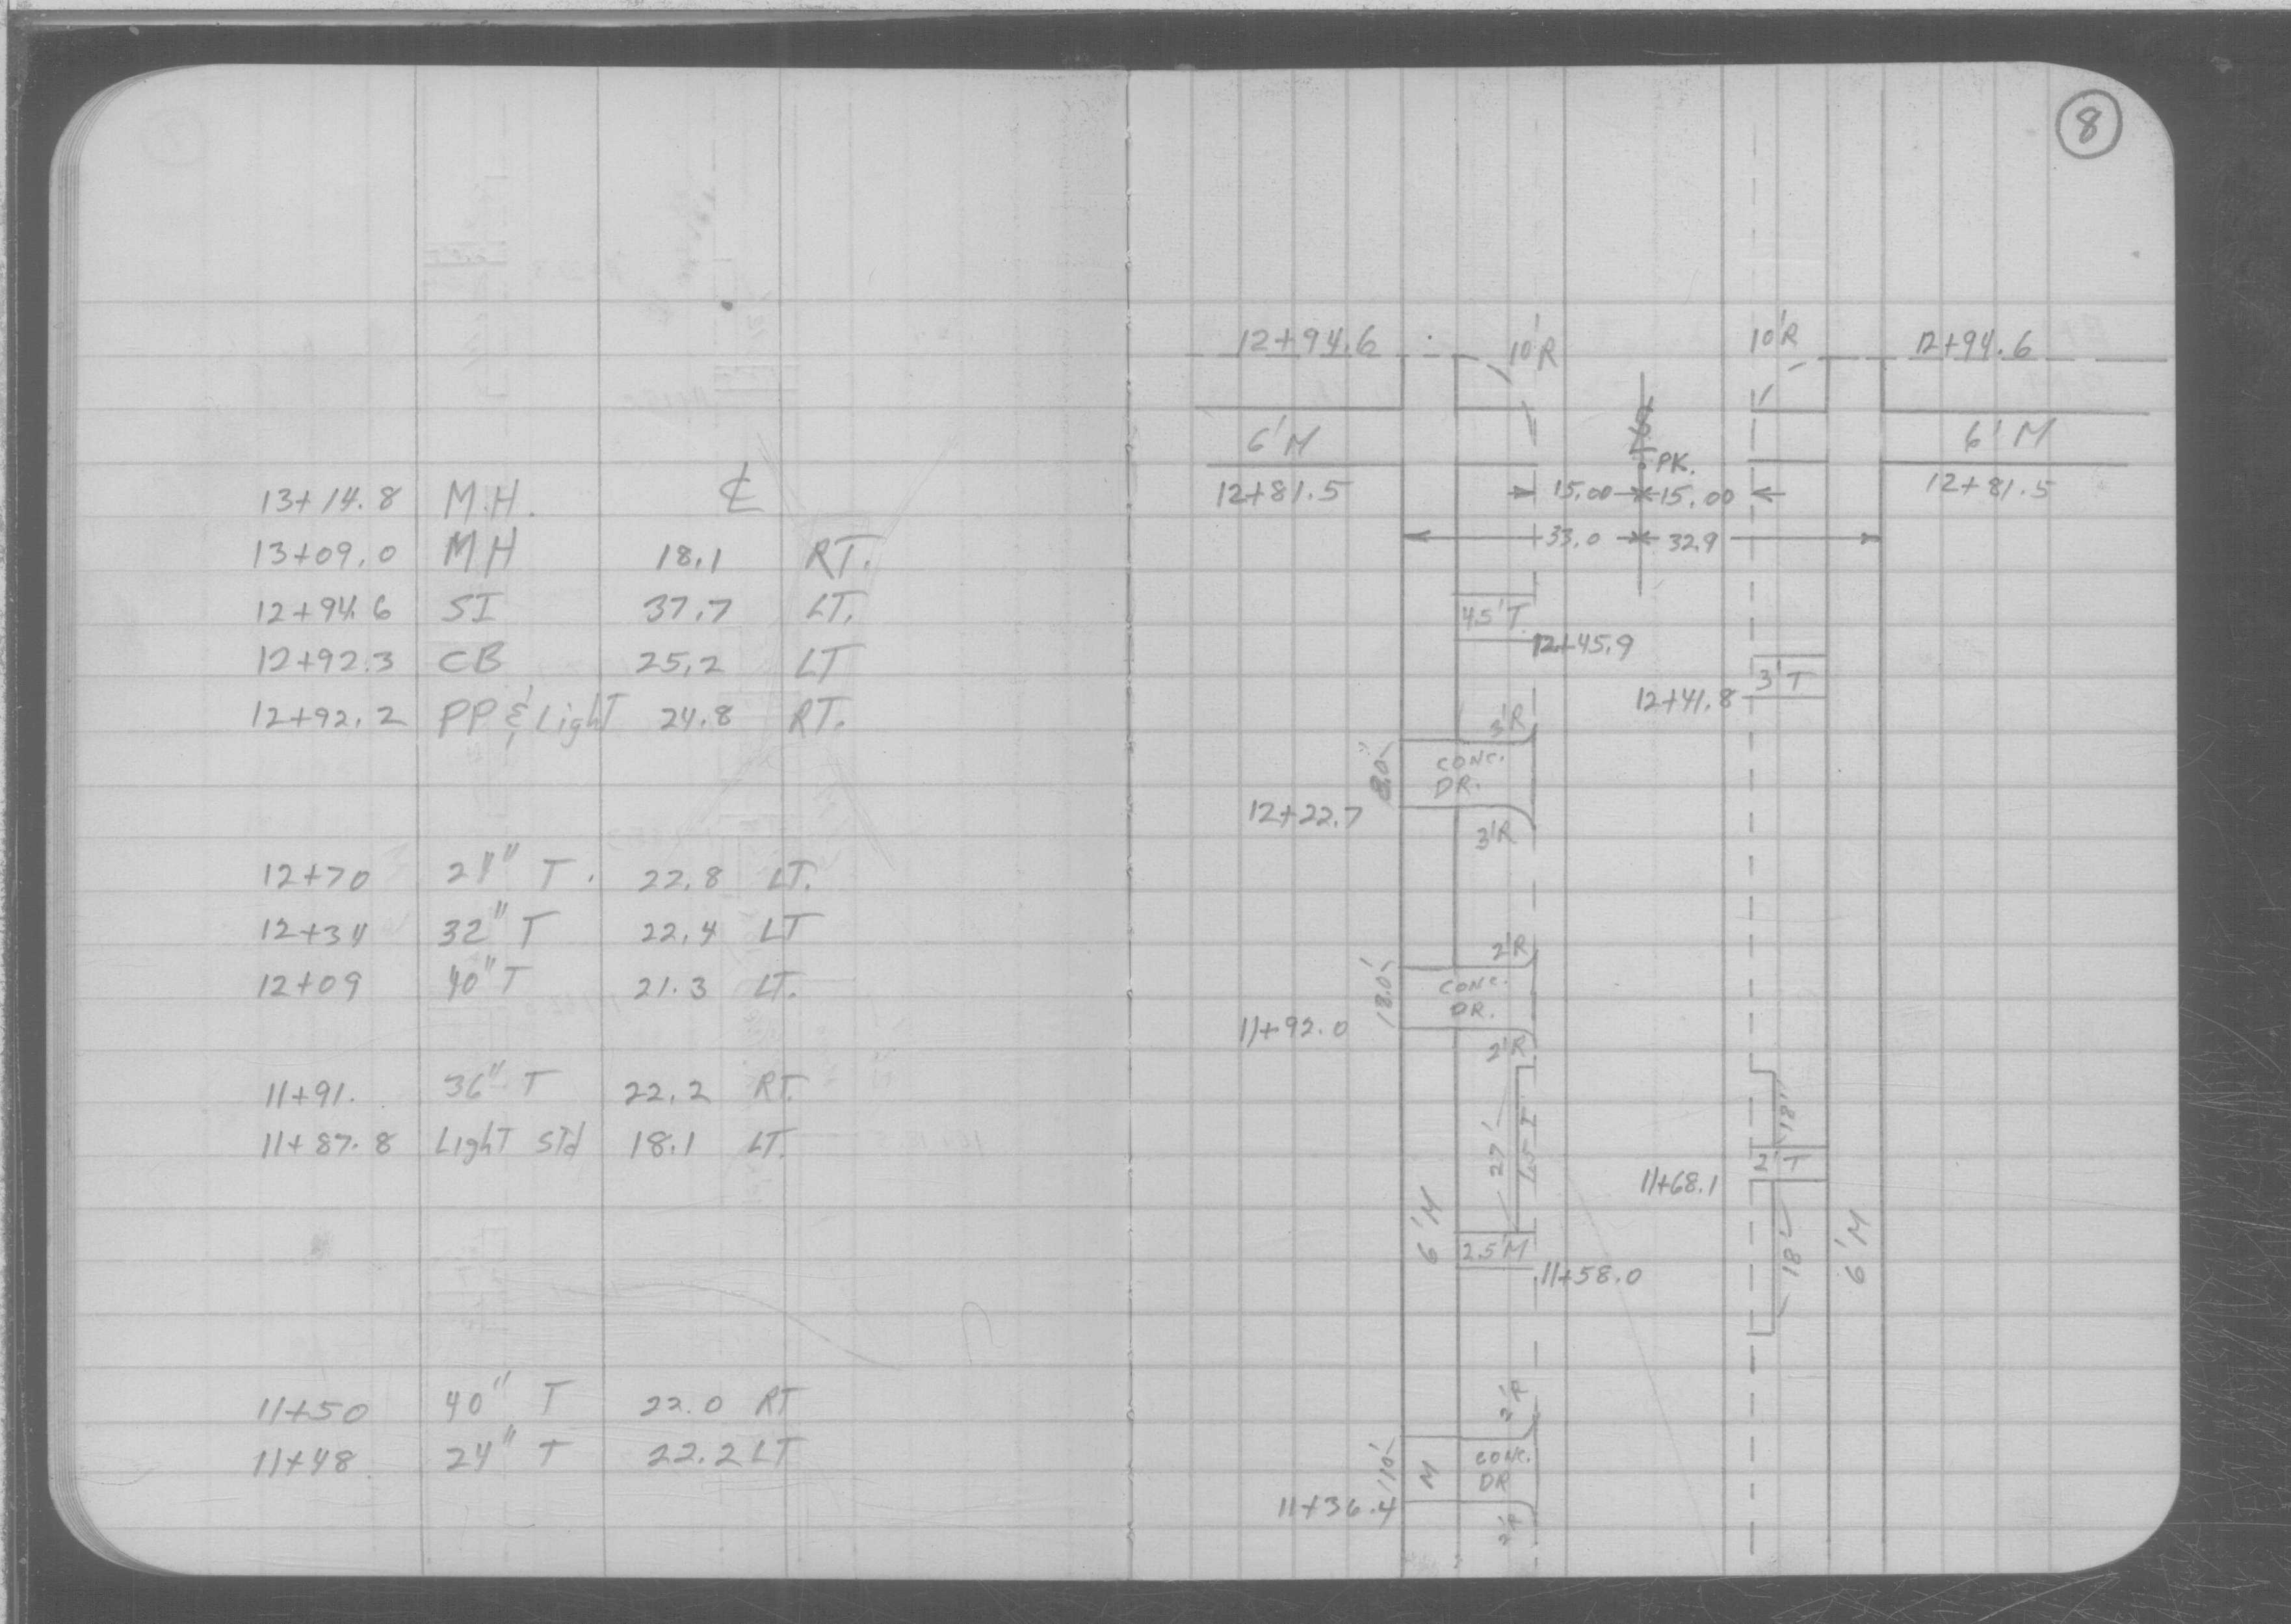 13+14.8 M.H. ℄
13+09.0 MH 18.1 RT.
12+94.6 SI 37.7 LT.
12+92.3 CB 25.2 LT
12+92.2 PP & Light 24.8 RT.
12+70 24" T. 22.8 LT.
12+34 32" T 22.4 LT
12+09 40" T 21.3 LT.
11+91. 36" T 22.2 RT.
11+87.8 LighT STd 18.1 LT.
11+50 40" T 22.0 RT
11+48 24" T 22.2 LT
8
12+94.6 10'R 10'R 12+94.6
6'M 6'M
PK.
12+81.5 15.00 15.00 12+81.5
33.0 32.9
4.5'T
12+45.9
3'T
12+41.8
3'R
CONC.
DR.
12+22.7
3'R
2'R
18.0'
CONC.
DR.
11+92.0
2'R
27'
18'
2'T
11+68.1
6'M
2.5'M
11+58.0
18'
6'M
2'R
110'
M
CONC.
DR
11+36.4
2'R